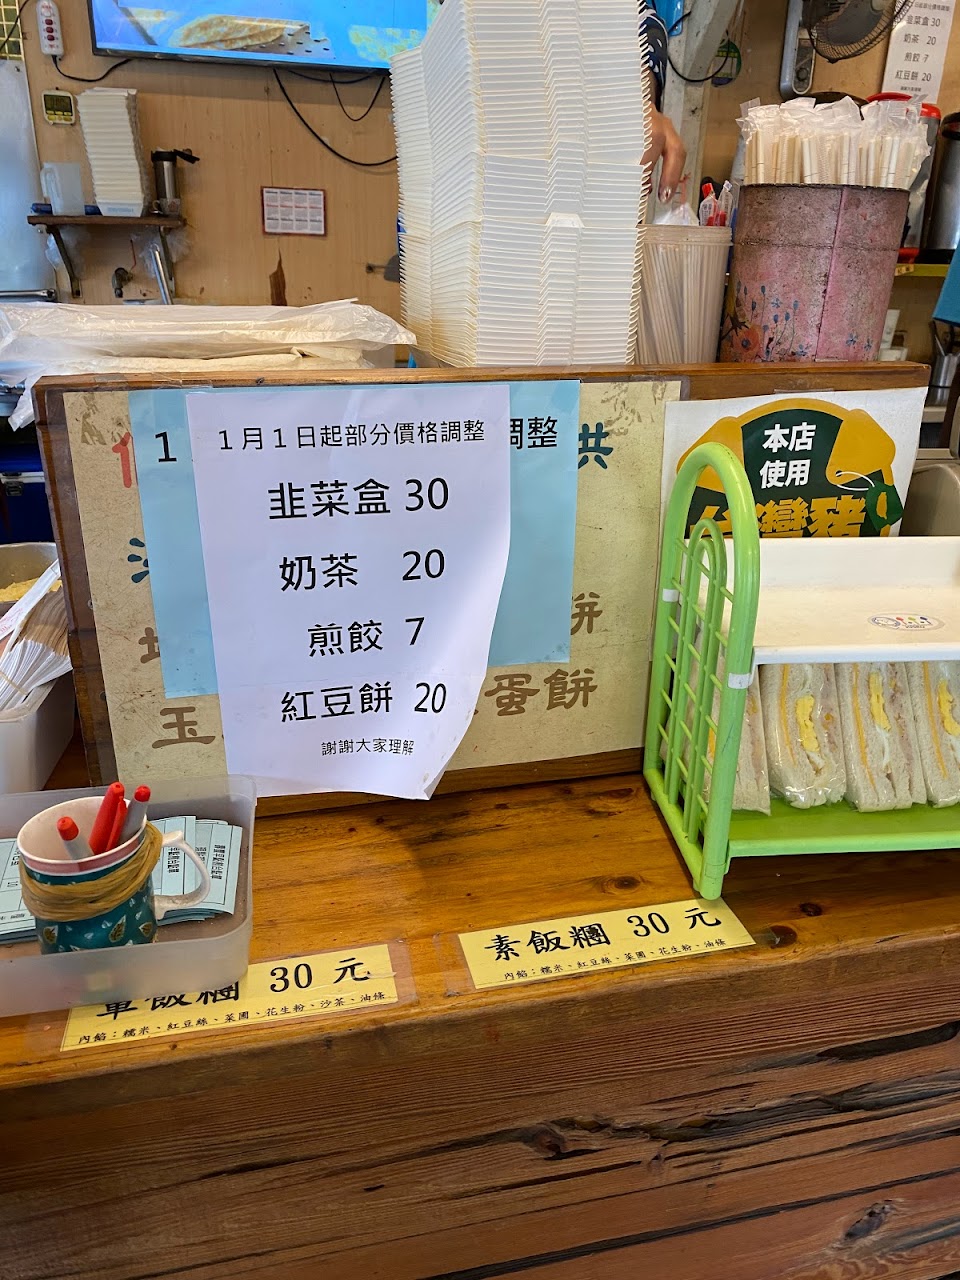 韭菜盒 30
奶茶 20
煎餃 7
紅豆餅 20
1月1日起部分價格調整
韭菜盒 30
奶茶 20
煎餃 7
紅豆餅 20
謝謝大家理解
1
調整
共
餅
蛋餅
玉
本店
使用
台灣豬
素飯糰 30 元
內餡：糯米、紅豆絲、菜圃、花生粉、油條
葷飯糰 30 元
內餡：糯米、紅豆絲、菜圃、花生粉、沙茶、油條